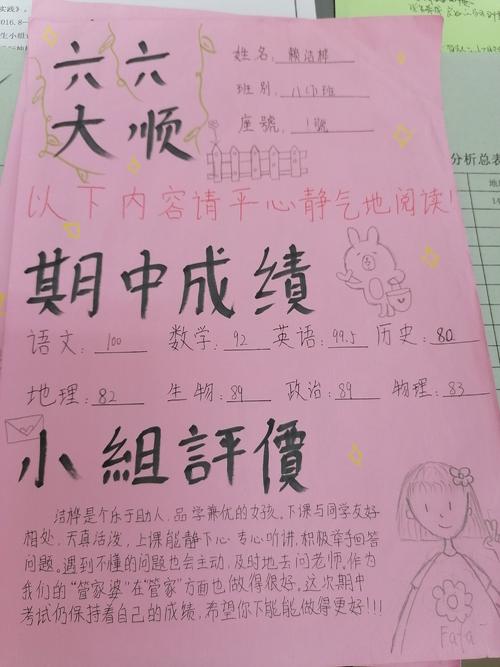 六六
大顺
姓名: 赖洁桦
班别: 八(1)班
座號, 1號
以下内容请平心静气地阅读!
期中成績
语文: 100 数学: 92 英语: 99.5 历史: 80
地理: 82 生物: 89 政治: 89 物理: 83
小組評價
洁桦是个乐于助人,品学兼优的女孩。下课与同学友好
相处,天真活泼,上课能静下心专心听讲,积极举手回答
问题。遇到不懂的问题也会主动,及时地去问老师。作为
我们的“管家婆”在“管家”方面也做得很好。这次期中
考试仍保持着自己的成绩,希望你下能能做得更好!!!
Fafa
分析总表